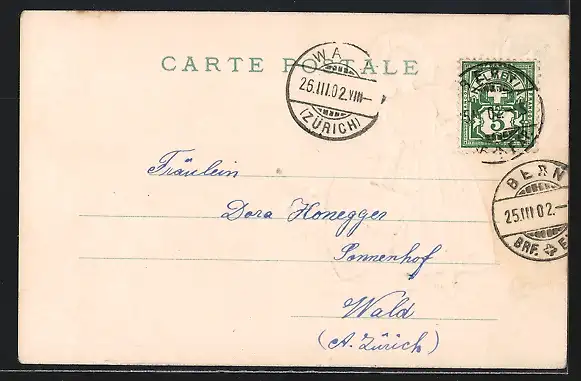 CARTE POSTALE
WA
26.III.02.VIII-
(ZÜRICH)
5
BERN
25.III.02.-
BRF.
Fräulein
Dora Honegger
Sonnenhof
Wald
(Kt. Zürich)